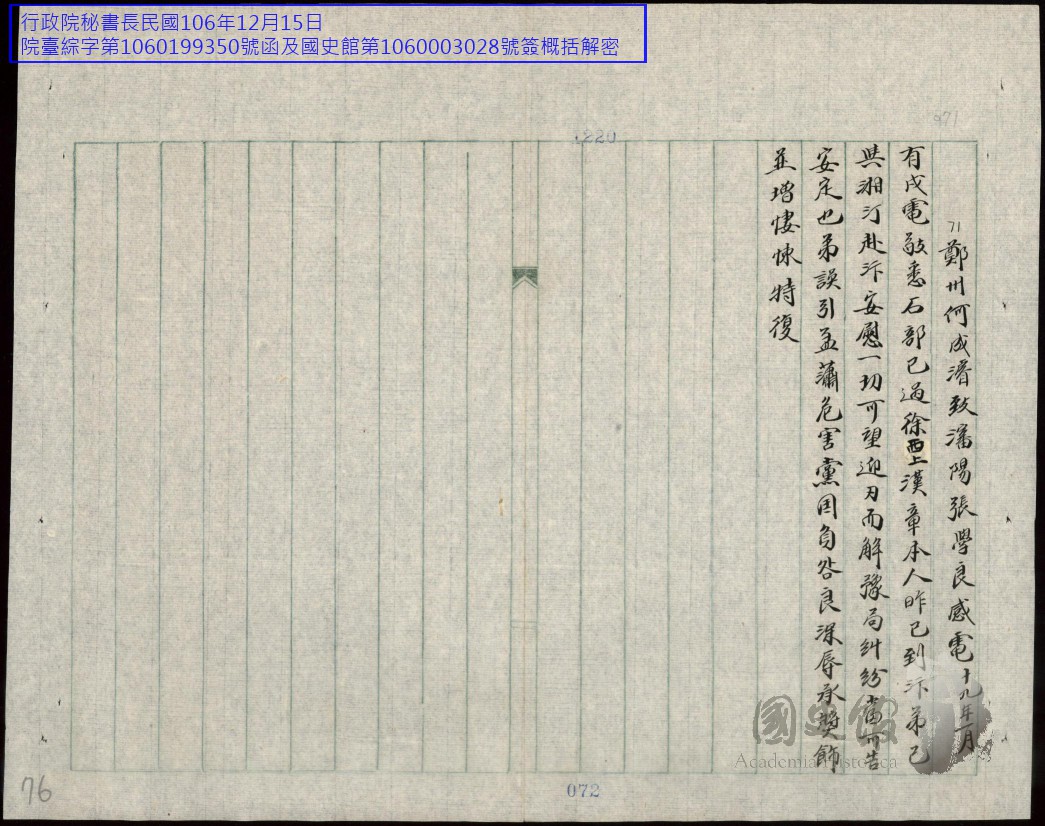 行政院秘書長民國106年12月15日
院臺綜字第1060199350號函及國史館第1060003028號簽概括解密
1220
971
71
鄭州何成濬致瀋陽張學良感電十九年一月
有戌電敬悉石部已過徐西上漢章本人昨已到汴弟已
與湘汀赴汴安慰一切可望迎刃而解豫局糾紛當可告
安定也弟誤引孟瀟危害黨國負咎良深辱承奬飾
並增悽悚特復
國史館
Academia Historica
072
76